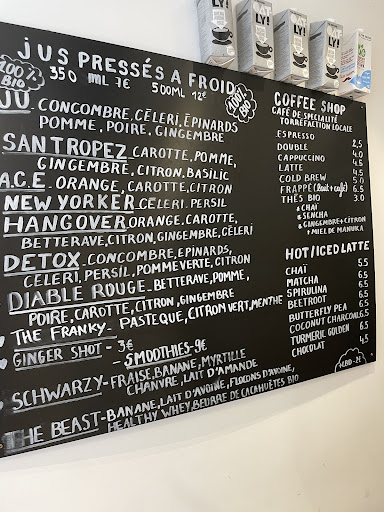 OAT-LY!
JUS PRESSÉS A FROID
100% BIO
350 ML 7€ 500ML 12€
100% BIO
JU. CONCOMBRE, CÉLERI, ÉPINARDS
POMME, POIRE, GINGEMBRE
SAN TROPEZ. CAROTTE, POMME,
GINGEMBRE, CITRON, BASILIC
A.C.E. ORANGE, CAROTTE, CITRON
NEW YORKER. CÉLERI. PERSIL
HANGOVER. ORANGE, CAROTTE,
BETTERAVE, CITRON, GINGEMBRE, CÉLERI
DETOX. CONCOMBRE, EPINARDS,
CELERI, PERSIL, POMME VERTE, CITRON
DIABLE ROUGE. BETTERAVE, POMME,
POIRE, CAROTTE, CITRON, GINGEMBRE
THE FRANKY - PASTEQUE, CITRON VERT, MENTHE
GINGER SHOT - 3€
- SMOOTHIES - 9€
SCHWARZY - FRAISE, BANANE, MYRTILLE
CHANVRE, LAIT D'AMANDE
THE BEAST - BANANE, LAIT D'AVOINE, FLOCONS D'AVOINE,
HEALTHY WHEY, BEURRE DE CACAHUÈTES BIO
COFFEE SHOP
CAFÉ DE SPÉCIALITÉ
TORREFACTION LOCALE
ESPRESSO 2,5
DOUBLE 4.0
CAPPUCCINO 4.5
LATTE 4.5
COLD BREW 5.0
FRAPPÉ (lait + café) 6.5
THÉS BIO 3.0
CHAÏ
SENCHA
GINGEMBRE + CITRON
+ MIEL DE MANUKA
HOT/ICED LATTE
CHAÏ 5.5
MATCHA 6.5
SPIRULINA 6.5
BEETROOT 6.5
BUTTERFLY PEA 6.5
COCONUT CHARCOAL 6.5
TURMERIC GOLDEN 6.5
CHOCOLAT 4.5
+CBD - 2€